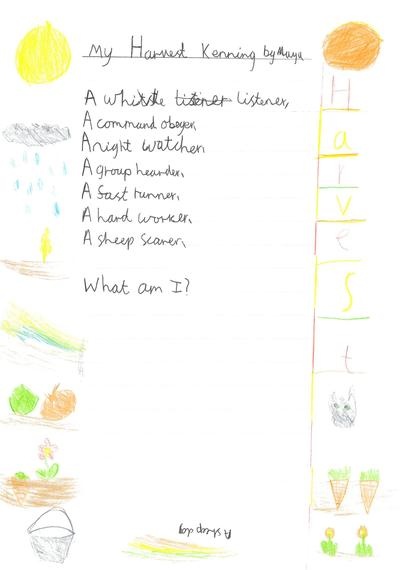 My Harvest Kenning by Maya
A whistle listener listener,
A command obeyer,
A night watcher,
A group hearder,
A fast runner,
A hard worker,
A sheep scarer,
What am I?
A sheep dog
H
a
r
v
e
s
t